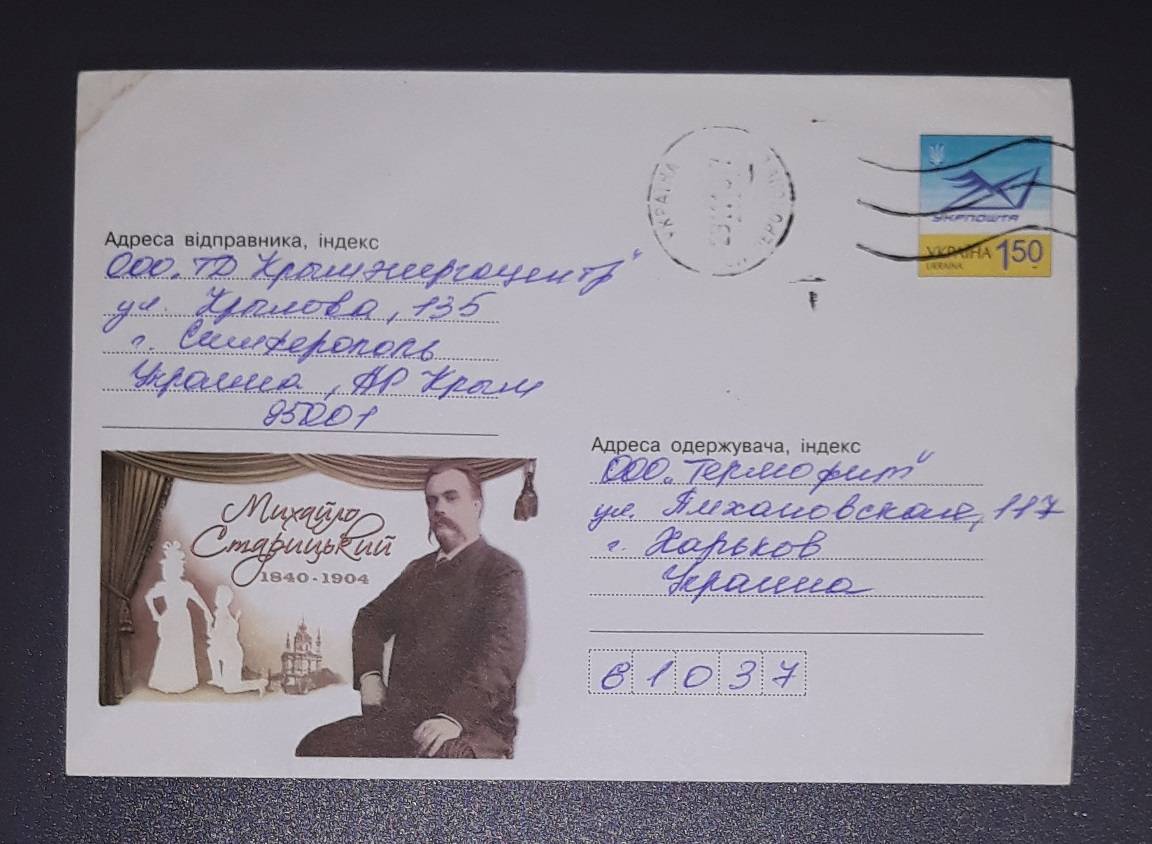 УКРАЇНА
УКРПОШТА
УКРАЇНА 150
UKRAINA
Адреса відправника, індекс
ООО „ТД Крымэнергоцентр"
ул. Крылова, 135
г. Симферополь
Украина, АР Крым
95001
Михайло
Старицький
1840 - 1904
Адреса одержувача, індекс
ООО „Термофит"
ул. Плехановская, 117
г. Харьков
Украина
61037